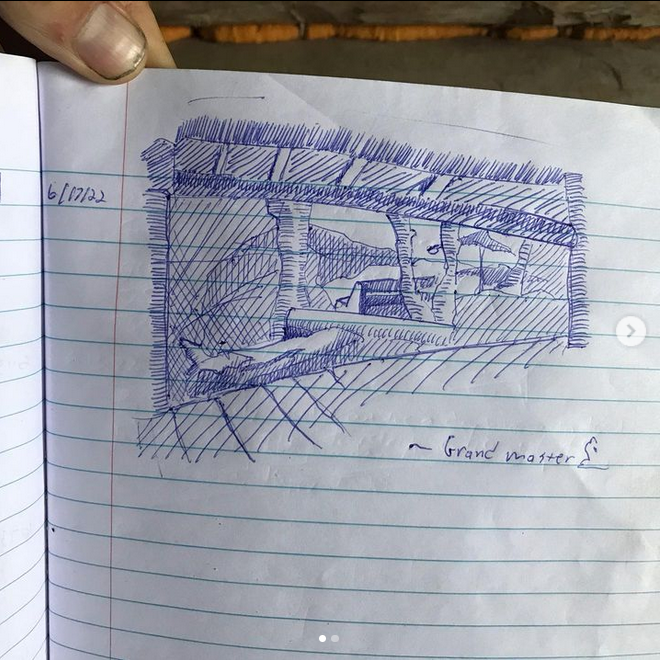 6/17/22
~ Grand master